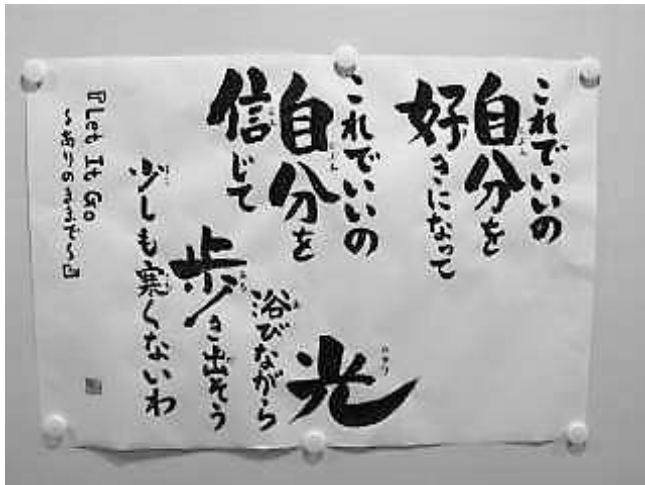 これでいいの
自分を
好きになって
これでいいの
自分を
信じて
光
浴びながら
歩き出そう
少しも寒くないわ
『Let It Go
～ありのままで～』